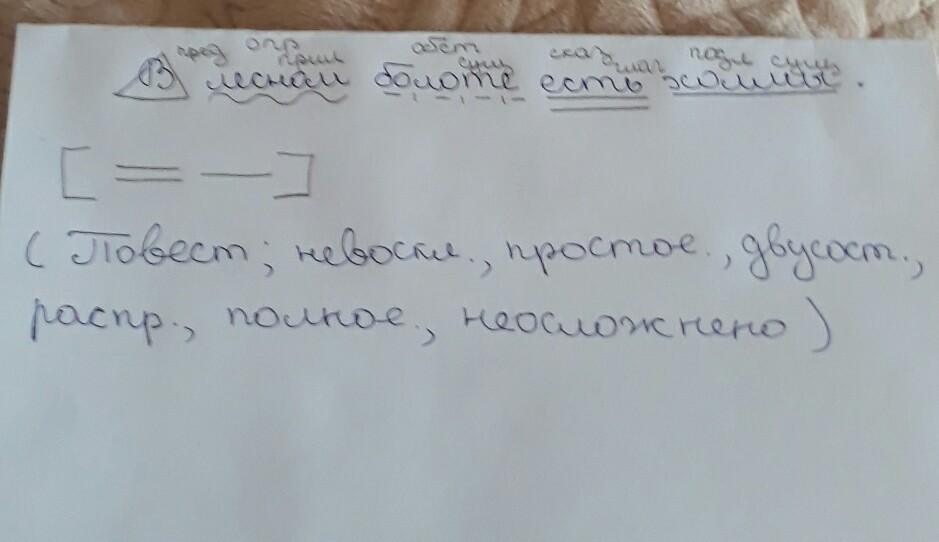 пред опр прил обст сущ сказ глаг подл сущ
В лесном болоте есть холмы.
[ = — ]
( Повест; невоскл., простое., двусост.,
распр., полное., неосложнено )